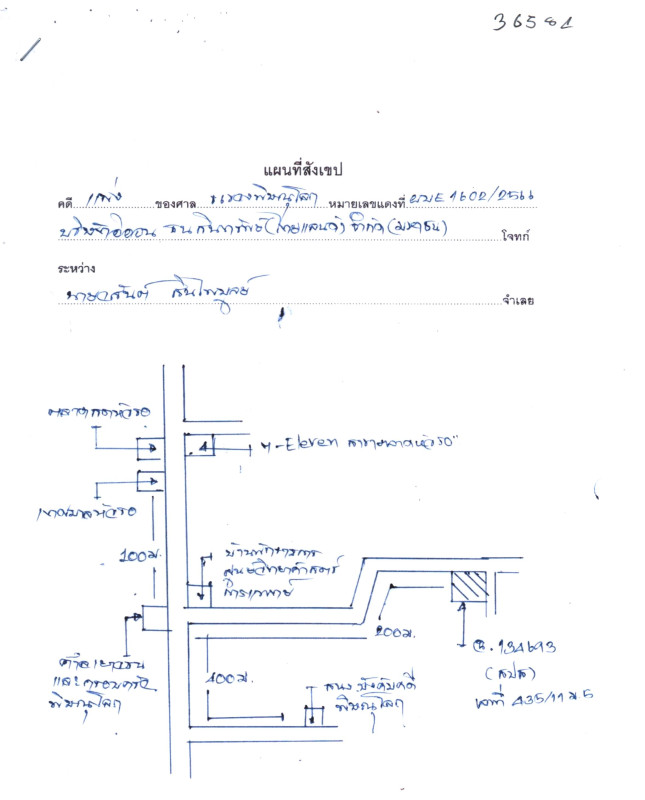 36581
แผนที่สังเขป
คดี แพ่ง ของศาล แขวงพิษณุโลก หมายเลขแดงที่ ผบE1602/2566
บริษัทอิออน ธนสินทรัพย์(ไทยแลนด์) จำกัด(มหาชน) โจทก์
ระหว่าง
จำเลย
ตลาดสดหัวรอ
7-Eleven สาขาตลาดหัวรอ"
เทศบาลหัวรอ
100ม.
บ้านพักข้าราชการ
ศูนย์วิทยาศาสตร์
การแพทย์
ศาลเยาวชน
และครอบครัว
พิษณุโลก
400ม.
200ม.
สนง.บังคับคดี
พิษณุโลก
ฉ.134613
(สปส)
เลขที่ 435/11 ม 5